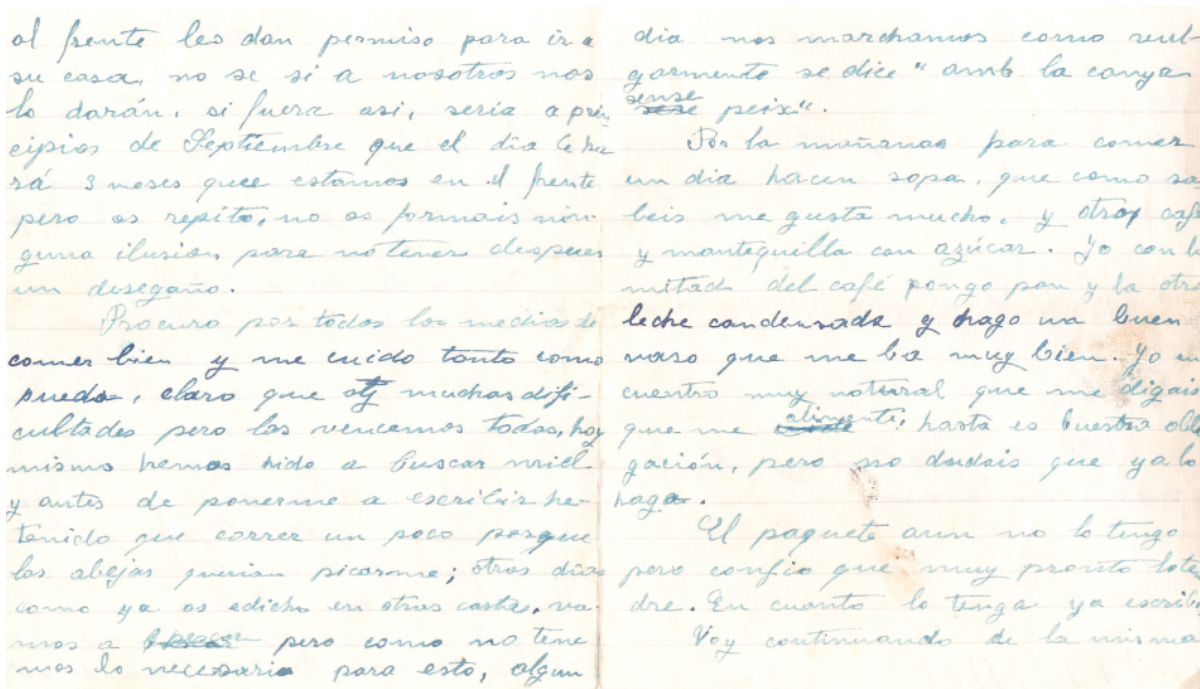 al frente les dan permiso para ir a
su casa, no se si a nosotros nos
lo darán, si fuera asi, seria a prin
cipios de Septiembre que el día 6 ha
rá 3 meses que estamos en el frente
pero os repito, no os formais nin-
guna ilusion para no tener despues
un desegaño.
Procuro por todos los medios de
comer bien y me cuido tanto como
puedo, claro que muchas difi-
cultades pero las vencemos todas, hoy
mismo hemos hido a buscar miel
y antes de ponerme a escribir he-
tenido que correr un poco porque
las abejas querian picarme; otros dias
como ya os edicho en otras cartas, va-
mos a pescar pero como no tene
mos lo necesario para esto, algun
dia nos marchamos como vul-
garmente se dice "amb la canya
sense peix".
Por la mañana para comer
un dia hacen sopa, que como sa
beis me gusta mucho, y otro café
y mantequilla con azúcar. Yo con la
mitad del café pongo pan y la otra
leche condensada y hago un buen
vaso que me ba muy bien. Yo en
cuentro muy natural que me digais
que me alimente, hasta es buestra obli
gación, pero no dudais que ya lo
haga.
El paquete aun no lo tengo
pero confio que muy pronto lo ten
dre. En cuanto lo tenga ya escribi
Voy continuando de la misma